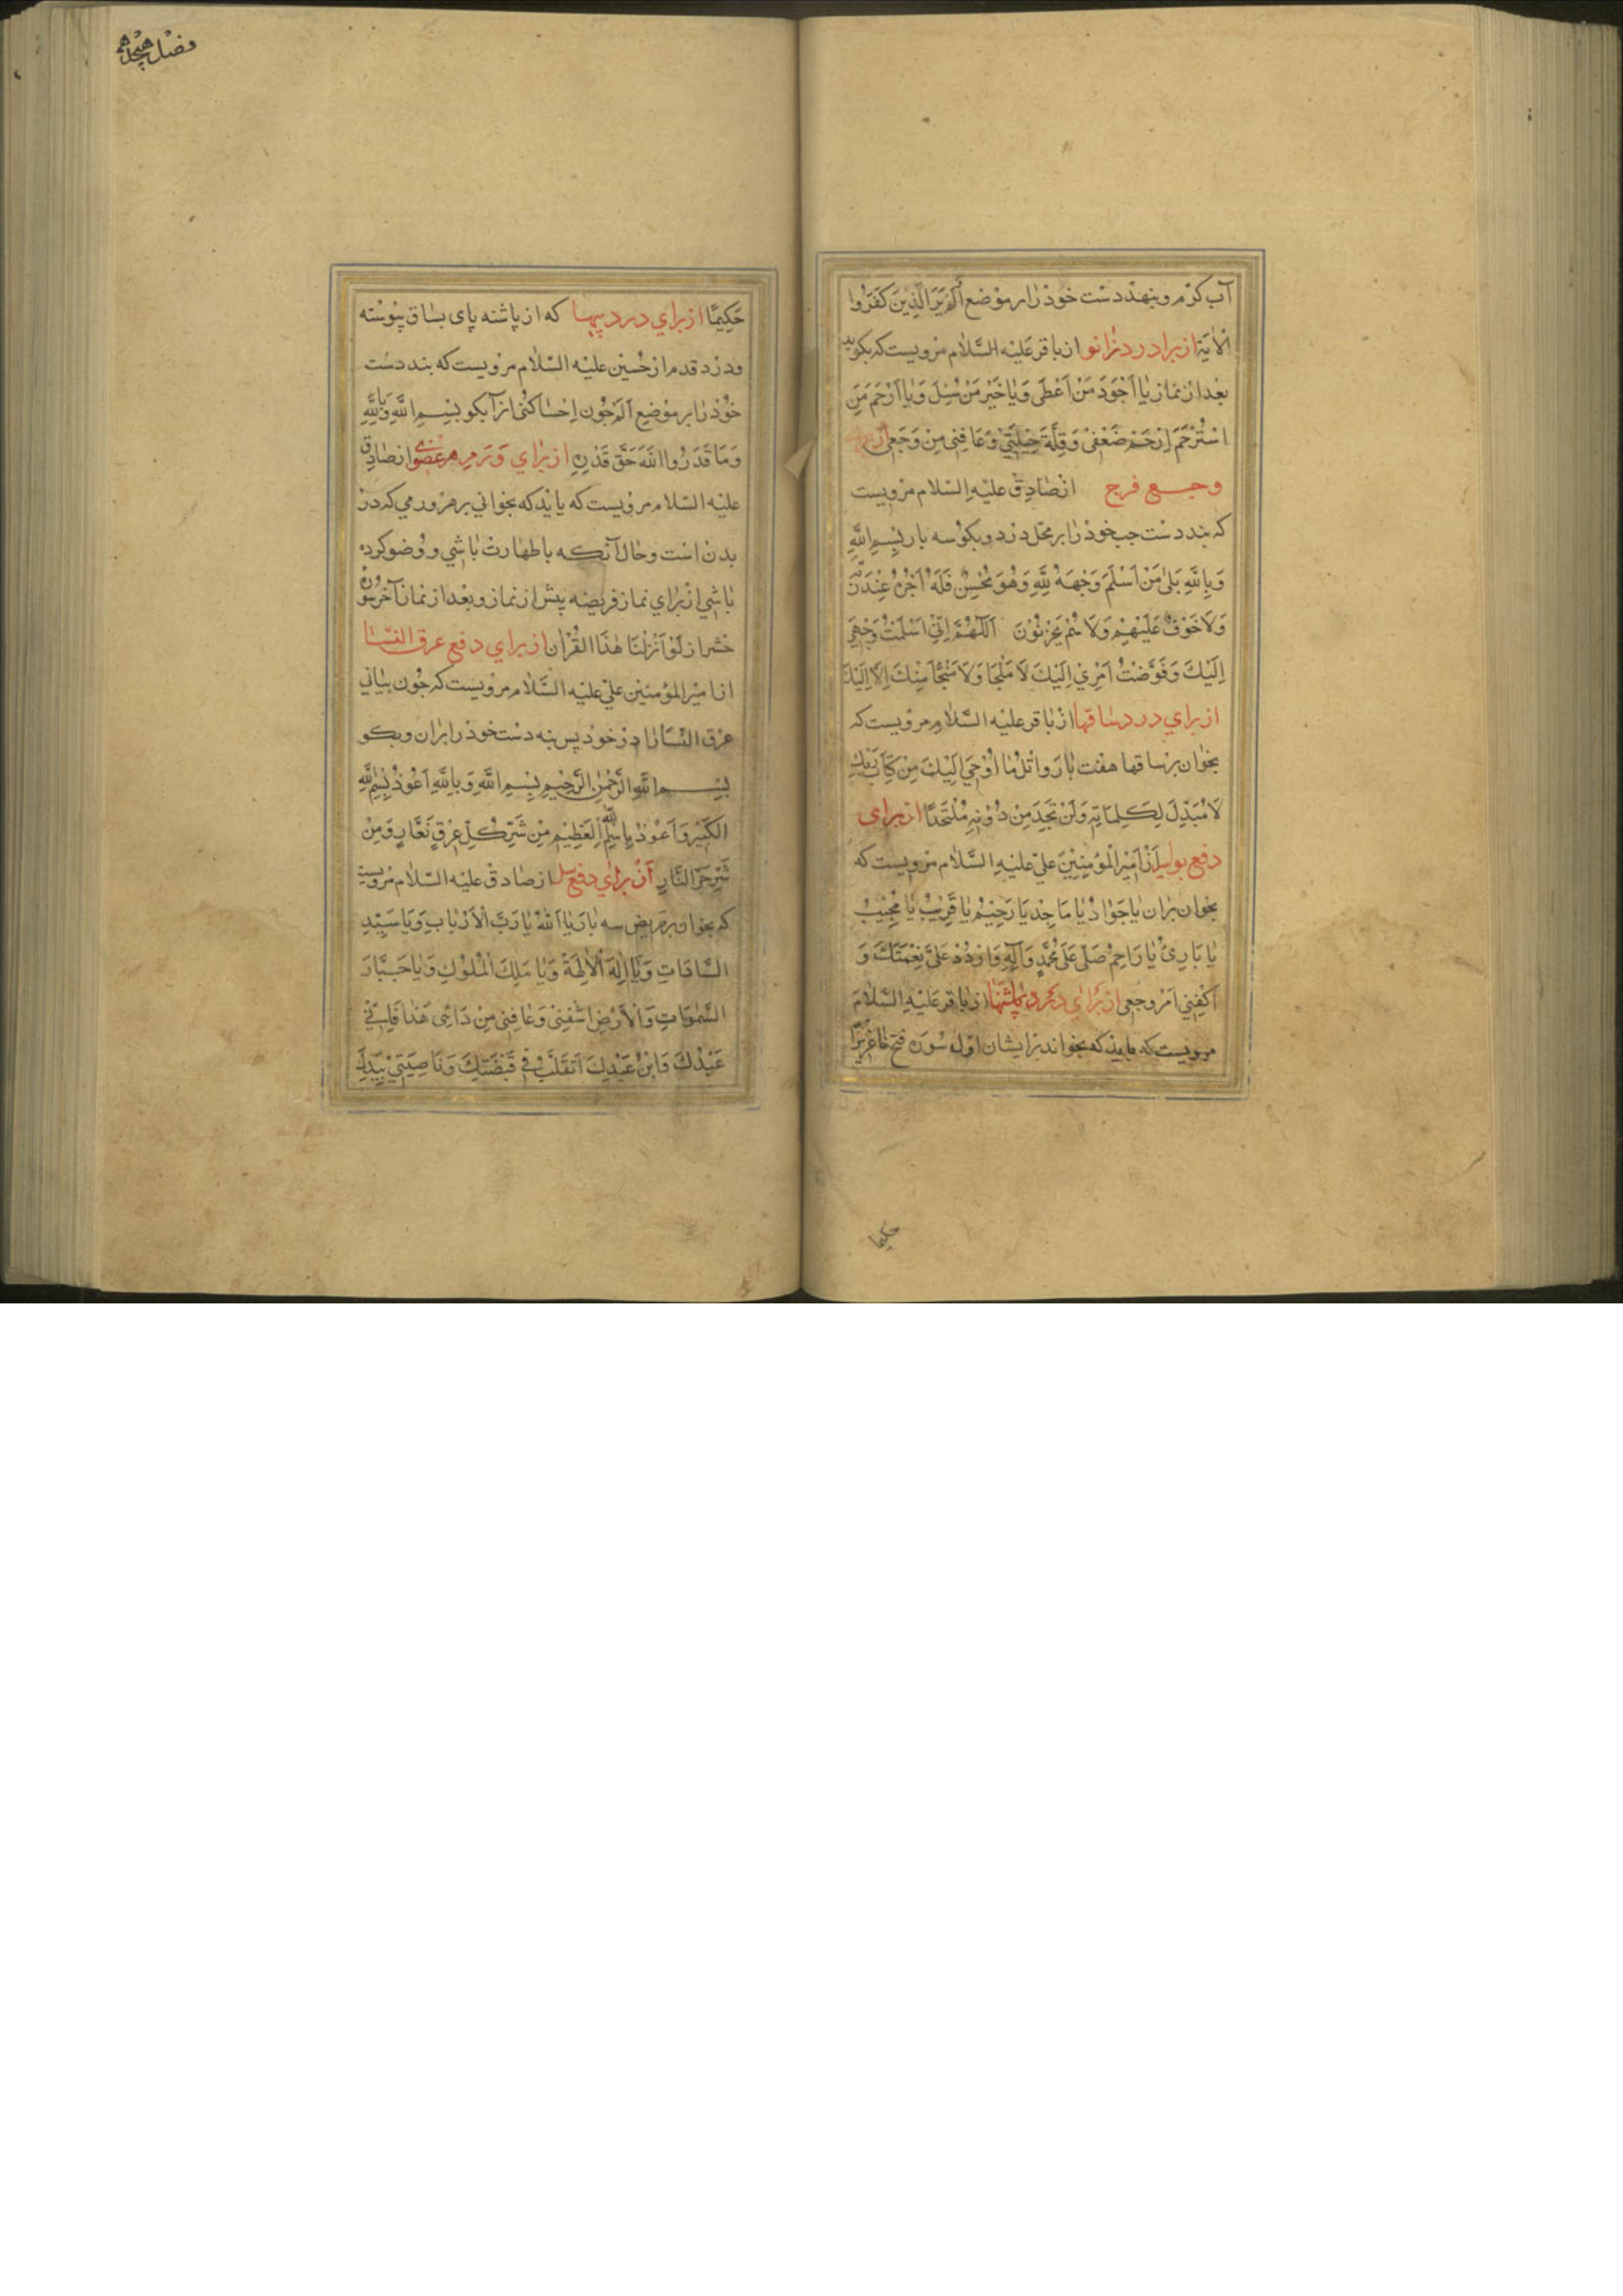 آب کرم و بنهد دست خود را بر موضع الم أَوَلَمْ يَرَ الَّذِينَ كَفَرُوا
الْآيَة از برا درد زانو از باقر عليه السلام مرويست كه بكويد
بعد از نماز يَا أَجْوَدَ مَنْ أَعْطَى وَيَا خَيْرَ مَنْ سُئِلَ وَيَا أَرْحَمَ مَنِ
اسْتُرْحِمَ اِرْحَمْ ضَعْفِي وَقِلَّةَ حِيلَتِي وَعَافِنِي مِنْ وَجَعِي از براى
وجع فرج از صادق عليه السلام مرويست
كه بنه دست جب خود را بر محل درد و بكو سه بار بِسْمِ اللَّهِ
وَبِاللَّهِ بَلَى مَنْ أَسْلَمَ وَجْهَهُ لِلَّهِ وَهُوَ مُحْسِنٌ فَلَهُ أَجْرُهُ عِنْدَ رَبِّهِ
وَلَا خَوْفٌ عَلَيْهِمْ وَلَا هُمْ يَحْزَنُونَ اَللَّهُمَّ اِنِّي اَسْلَمْتُ وَجْهِي
اِلَيْكَ وَفَوَّضْتُ اَمْرِي اِلَيْكَ لَا مَلْجَأَ وَلَا مَنْجَا مِنْكَ اِلَّا اِلَيْكَ
از براي درد ساقها از باقر عليه السلام مرويست كه
بخوان بر ساقها هفت بار وَاتْلُ مَا أُوْحِيَ اِلَيْكَ مِنْ كِتَابِ رَبِّكَ
لَا مُبَدِّلَ لِكَلِمَاتِهِ وَلَنْ تَجِدَ مِنْ دُونِهِ مُلْتَحَدًا از براى
دفع بواسير از امير المؤمنين علي عليه السلام مرويست كه
بخوان بران يَا جَوَادُ يَا مَاجِدُ يَا رَحِيمُ يَا قَرِيبُ يَا مُجِيبُ
يَا بَارِئُ يَا رَاحِمُ صَلِّ عَلَى مُحَمَّدٍ وَآلِهِ وَارْدُدْ عَلَيَّ نِعْمَتَكَ وَ
اكْفِنِي اَمْرَ وَجَعِي از براي درد پاشنها از باقر عليه السلام
مرويست كه بايد كه بخواند برايشان اول سوره فتح تا عَزِيزًا
حكيما
فصل هيجدهم
حَكِيمًا از براي درد پيها كه از پاشنه پاى بساق پيوسته
ودرد قدم از حسين عليه السلام مرويست كه بنه دست
خود را بر موضع الم جون احساس كنى ازآ بكو بِسْمِ اللَّهِ وَبِاللَّهِ
وَمَا قَدَرُوا اللَّهَ حَقَّ قَدْرِهِ از براي ورم هر عضوى از صادق
عليه السلام مرويست كه بايد كه بخواني بر هر ورمي كه در
بدن است وحال آنكه با طهارت باشي و وضو كرده
باشي از براي نماز فريضه پيش از نماز و بعد از نماز آخر سوره
حشر از لَوْ أَنْزَلْنَا هَذَا الْقُرْآن از براي دفع عرق النسا
از امير المؤمنين علي عليه السلام مرويست كه جون بيابي
عرق النسا را در خود پس بنه دست خود را بران و بكو
بِسْمِ اللَّهِ الرَّحْمَنِ الرَّحِيمِ بِسْمِ اللَّهِ وَبِاللَّهِ اَعُوذُ بِسْمِ اللَّهِ
الْكَبِيرِ وَاَعُوذُ بِاسْمِ اللَّهِ الْعَظِيمِ مِنْ شَرِّ كُلِّ عِرْقٍ نَعَّارٍ وَمِنْ
شَرِّ حَرِّ النَّارِ از براي دفع سل از صادق عليه السلام مرويست
كه بخوان بر مريض سه بار يَا اَللَّهُ يَا رَبَّ الْاَرْبَابِ وَيَا سَيِّدَ
السَّادَاتِ وَيَا اِلَهَ الْآلِهَةِ وَيَا مَلِكَ الْمُلُوكِ وَيَا جَبَّارَ
السَّمَوَاتِ وَالْاَرْضِ اشْفِنِي وَعَافِنِي مِنْ دَائِي هَذَا فَاِنِّي
عَبْدُكَ وَابْنُ عَبْدِكَ اَتَقَلَّبُ فِي قَبْضَتِكَ وَنَاصِيَتِي بِيَدِكَ